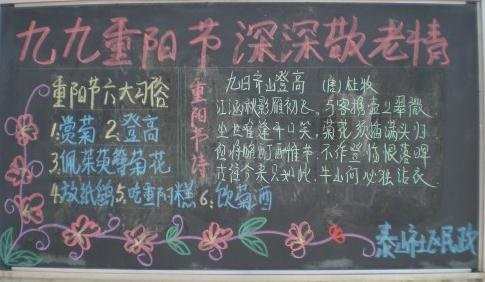 九九重阳节深深敬老情
重阳节六大习俗
1.赏菊 2.登高
3.佩茱萸簪菊花
4.放纸鹞 5.吃重阳糕 6.饮菊酒
重阳节诗
九日齐山登高 (唐)杜牧
江涵秋影雁初飞，与客携壶上翠微
尘世难逢开口笑，菊花须插满头归
但将酩酊酬佳节，不作登临恨落晖
古往今来只如此，牛山何必独沾衣
社区民政